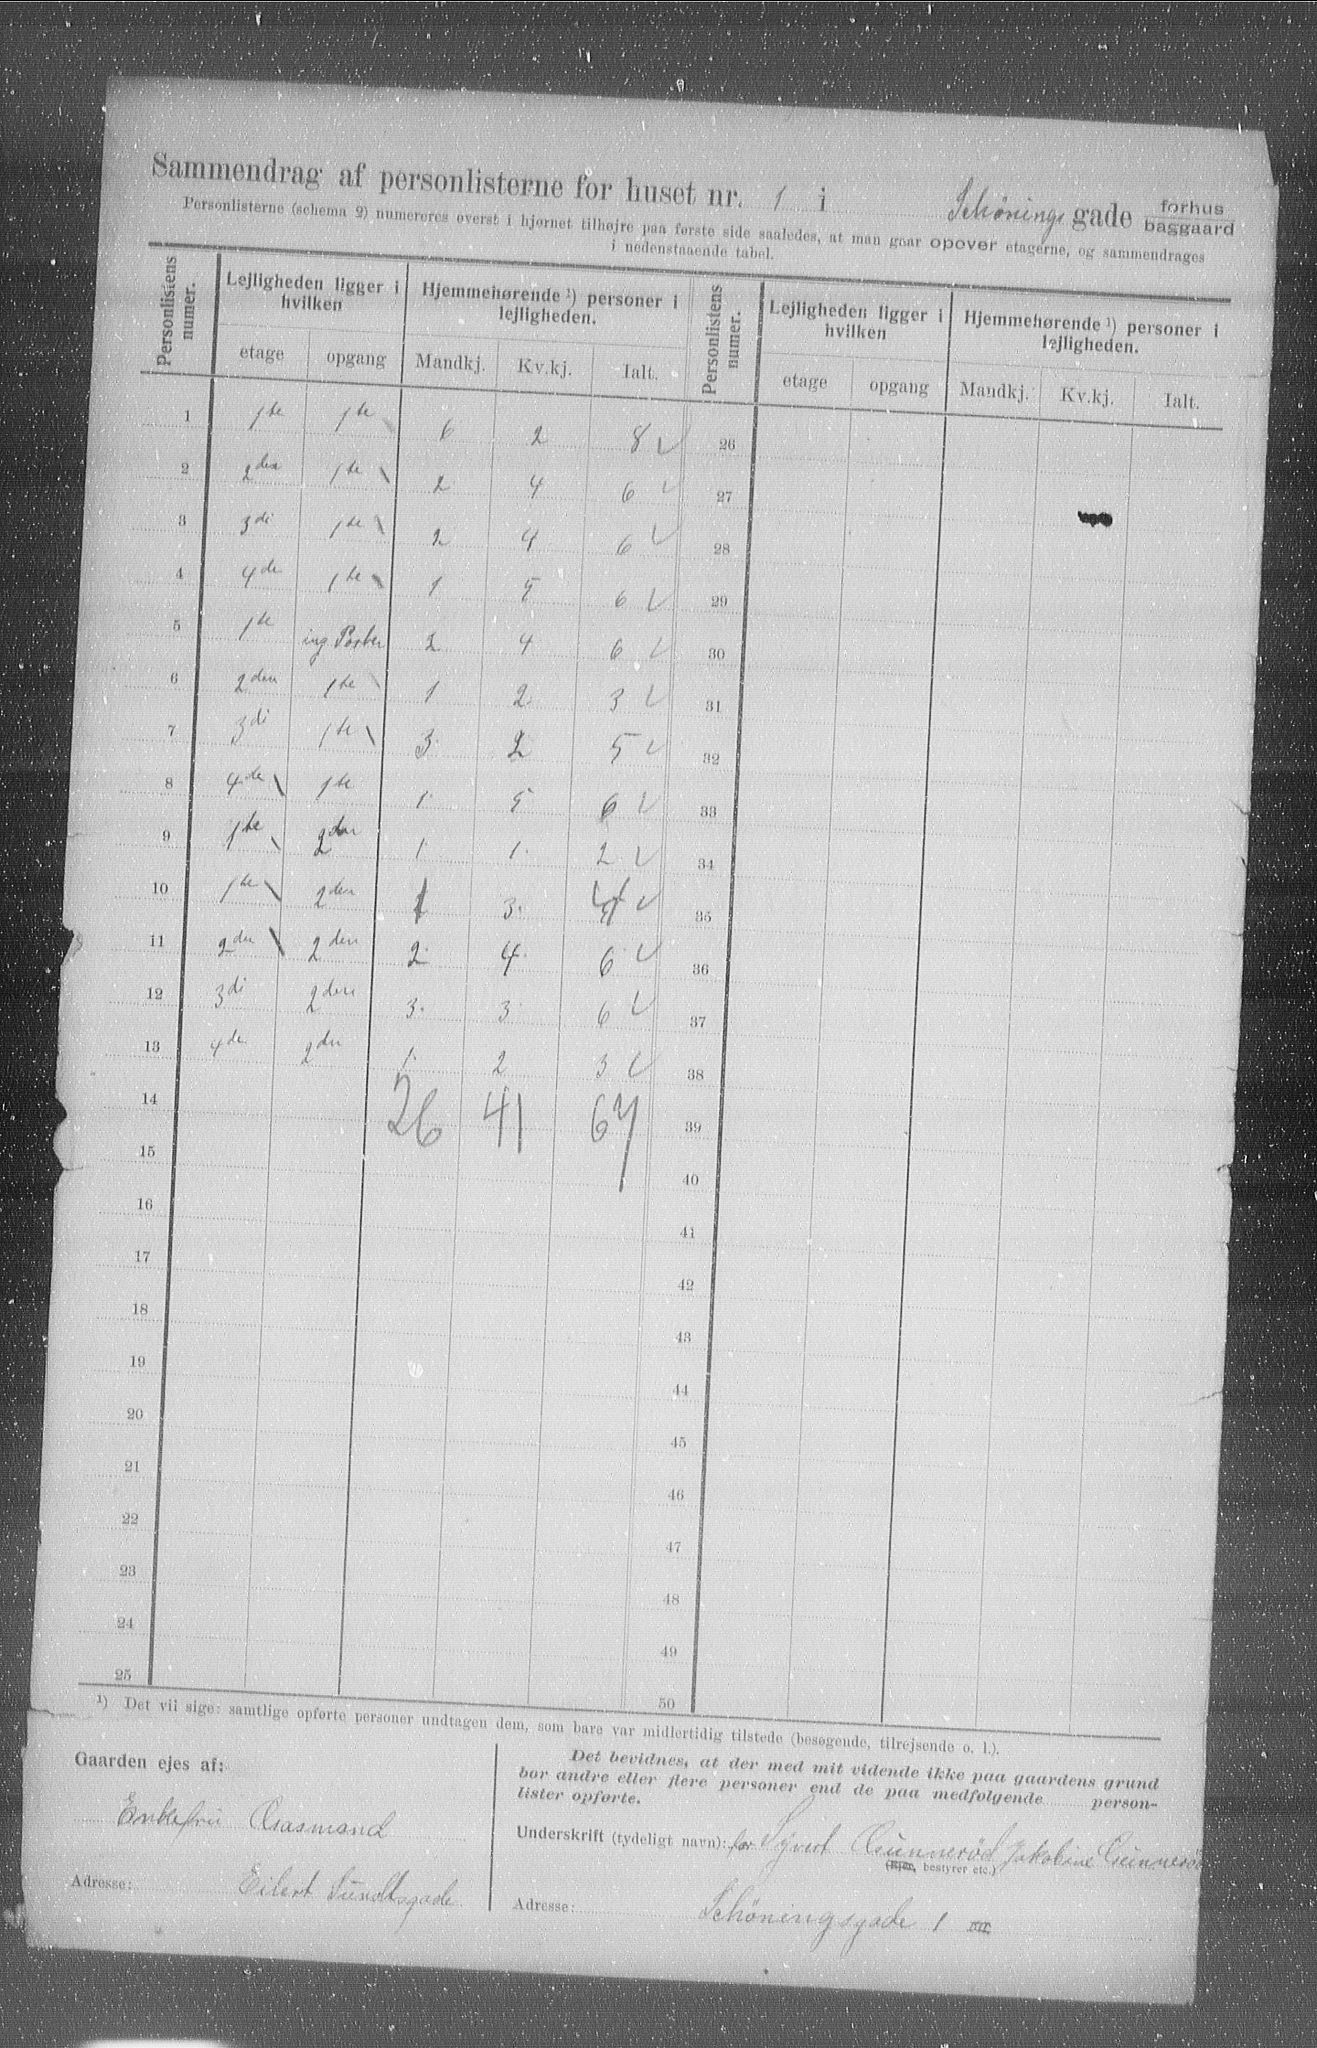 Sammendrag af personlisterne for huset nr. 1 i Schönings gade forhus baggaard
Personlisterne (schema 2) numereres øverst i hjørnet tilhøjre paa første side saaledes, at man gaar opover etagerne, og sammendrages
i nedenstaaende tabel.
Personlistens numer. Lejligheden ligger i hvilken Hjemmehørende ¹) personer i lejligheden. Personlistens numer. Lejligheden ligger i hvilken Hjemmehørende ¹) personer i lejligheden.
etage opgang Mandkj. Kv.kj. Ialt. etage opgang Mandkj. Kv.kj. Ialt.
1 1ste 1ste 6 2 8 26
2 2den 1ste 2 4 6 27
3 3di 1ste 2 4 6 28
4 4de 1ste 1 5 6 29
5 1ste ing Porten 2 4 6 30
6 2den 1ste 1 2 3 31
7 3di 1ste 3 2 5 32
8 4de 1ste 1 5 6 33
9 1ste 2den 1 1 2 34
10 1ste 2den 1 3 4 35
11 2den 2den 2 4 6 36
12 3di 2den 3 3 6 37
13 4de 2den 1 2 3 38
14 26 41 67 39
15 40
16 41
17 42
18 43
19 44
20 45
21 46
22 47
23 48
24 49
25 50
¹) Det vil sige: samtlige opførte personer undtagen dem, som bare var midlertidig tilstede (besøgende, tilrejsende o. l.).
Gaarden ejes af:
Enkefru Aasmand
Adresse: Eilert Sundtsgade
Det bevidnes, at der med mit vidende ikke paa gaardens grund
bor andre eller flere personer end de paa medfølgende person-
lister opførte.
Underskrift (tydeligt navn): for Syvert Gunnerød Jakobine Gunnerød
(Ejer, bestyrer etc.)
Adresse: Schöningsgade 1